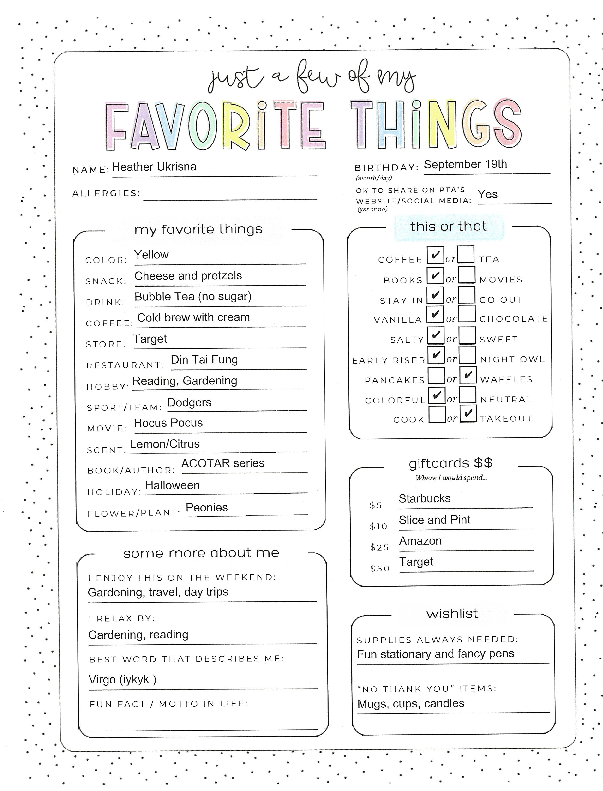 just a few of my
FAVORITE THINGS
NAME: Heather Ukrisna
BIRTHDAY: September 19th
(month/day)
ALLERGIES:
OK TO SHARE ON PTA'S
WEBSITE/SOCIAL MEDIA: Yes
(yes or no)
my favorite things
COLOR: Yellow
SNACK: Cheese and pretzels
DRINK: Bubble Tea (no sugar)
COFFEE: Cold brew with cream
STORE: Target
RESTAURANT: Din Tai Fung
HOBBY: Reading, Gardening
SPORT/TEAM: Dodgers
MOVIE: Hocus Pocus
SCENT: Lemon/Citrus
BOOK/AUTHOR: ACOTAR series
HOLIDAY: Halloween
FLOWER/PLANT: Peonies
this or that
COFFEE ✔ or TEA
BOOKS ✔ or MOVIES
STAY IN ✔ or GO OUT
VANILLA ✔ or CHOCOLATE
SALTY ✔ or SWEET
EARLY RISER ✔ or NIGHT OWL
PANCAKES or ✔ WAFFLES
COLORFUL ✔ or NEUTRAL
COOK or ✔ TAKEOUT
giftcards $$
Where I would spend...
$5 Starbucks
$10 Slice and Pint
$25 Amazon
$50 Target
some more about me
I ENJOY THIS ON THE WEEKEND:
Gardening, travel, day trips
I RELAX BY:
Gardening, reading
BEST WORD THAT DESCRIBES ME:
Virgo (iykyk )
FUN FACT / MOTTO IN LIFE:
wishlist
SUPPLIES ALWAYS NEEDED:
Fun stationary and fancy pens
"NO THANK YOU" ITEMS:
Mugs, cups, candles